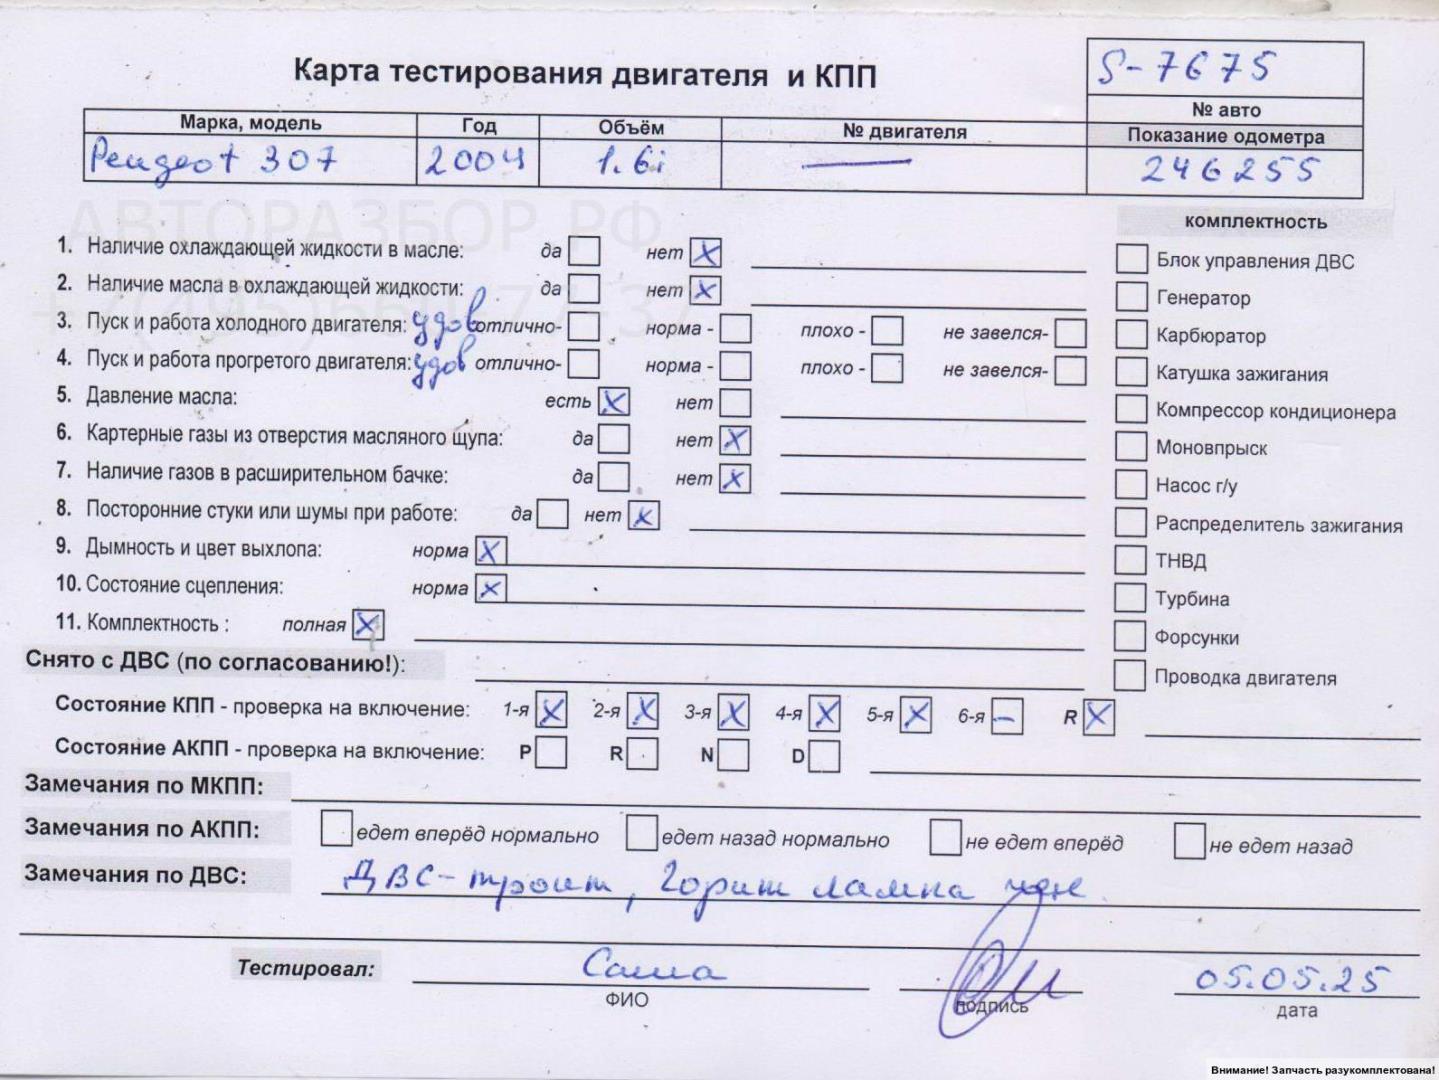 Карта тестирования двигателя и КПП
S-7675
№ авто
Марка, модель Год Объём № двигателя Показание одометра
Peugeot 307 2004 1.6i — 246255
АВТОРАЗБОР.РФ
комплектность
1. Наличие охлаждающей жидкости в масле: да нет X
Блок управления ДВС
2. Наличие масла в охлаждающей жидкости: да нет X
Генератор
3. Пуск и работа холодного двигателя: удов отлично- норма - плохо - не завелся-
Карбюратор
4. Пуск и работа прогретого двигателя: удов отлично- норма - плохо - не завелся-
Катушка зажигания
5. Давление масла: есть X нет
Компрессор кондиционера
6. Картерные газы из отверстия масляного щупа: да нет X
Моновпрыск
7. Наличие газов в расширительном бачке: да нет X
Насос г/у
8. Посторонние стуки или шумы при работе: да нет X
Распределитель зажигания
9. Дымность и цвет выхлопа: норма X
ТНВД
10. Состояние сцепления: норма X
Турбина
11. Комплектность : полная X
Форсунки
Снято с ДВС (по согласованию!):
Проводка двигателя
Состояние КПП - проверка на включение: 1-я X 2-я X 3-я X 4-я X 5-я X 6-я – R X
Состояние АКПП - проверка на включение: P R N D
Замечания по МКПП:
Замечания по АКПП: едет вперёд нормально едет назад нормально не едет вперёд не едет назад
Замечания по ДВС: ДВС-троит, Горит лампа
Тестировал: Саша 05.05.25
ФИО подпись дата
Внимание! Запчасть разукомплектована!